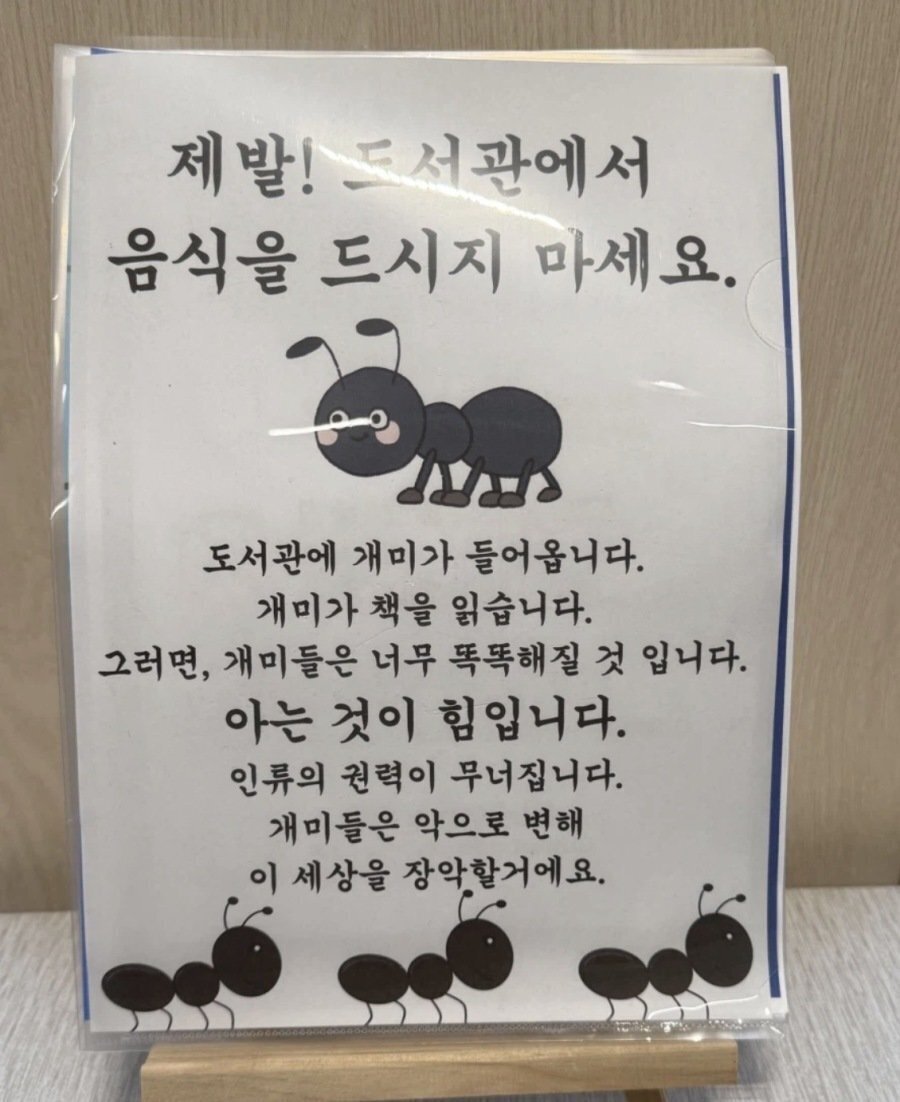 제발! 도서관에서
음식을 드시지 마세요.
도서관에 개미가 들어옵니다.
개미가 책을 읽습니다.
그러면, 개미들은 너무 똑똑해질 것 입니다.
아는 것이 힘입니다.
인류의 권력이 무너집니다.
개미들은 악으로 변해
이 세상을 장악할거에요.